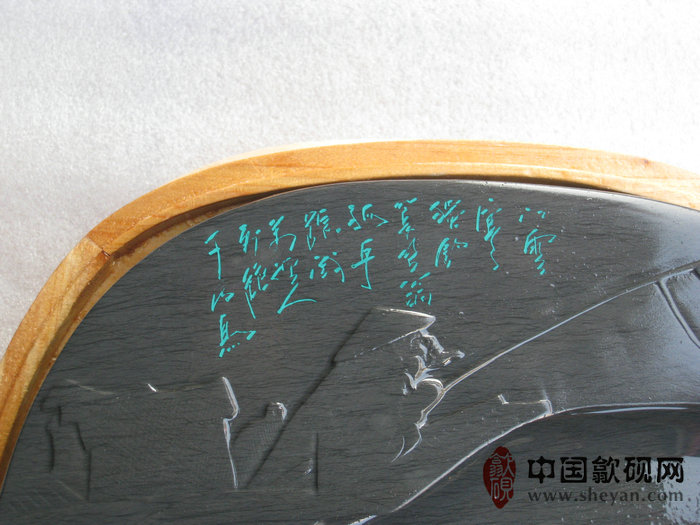 千山鳥
飛絕
萬徑人
蹤滅
孤舟
蓑笠翁
獨釣
寒
江雪
歙硯
中国歙砚网
www.sheyan.com